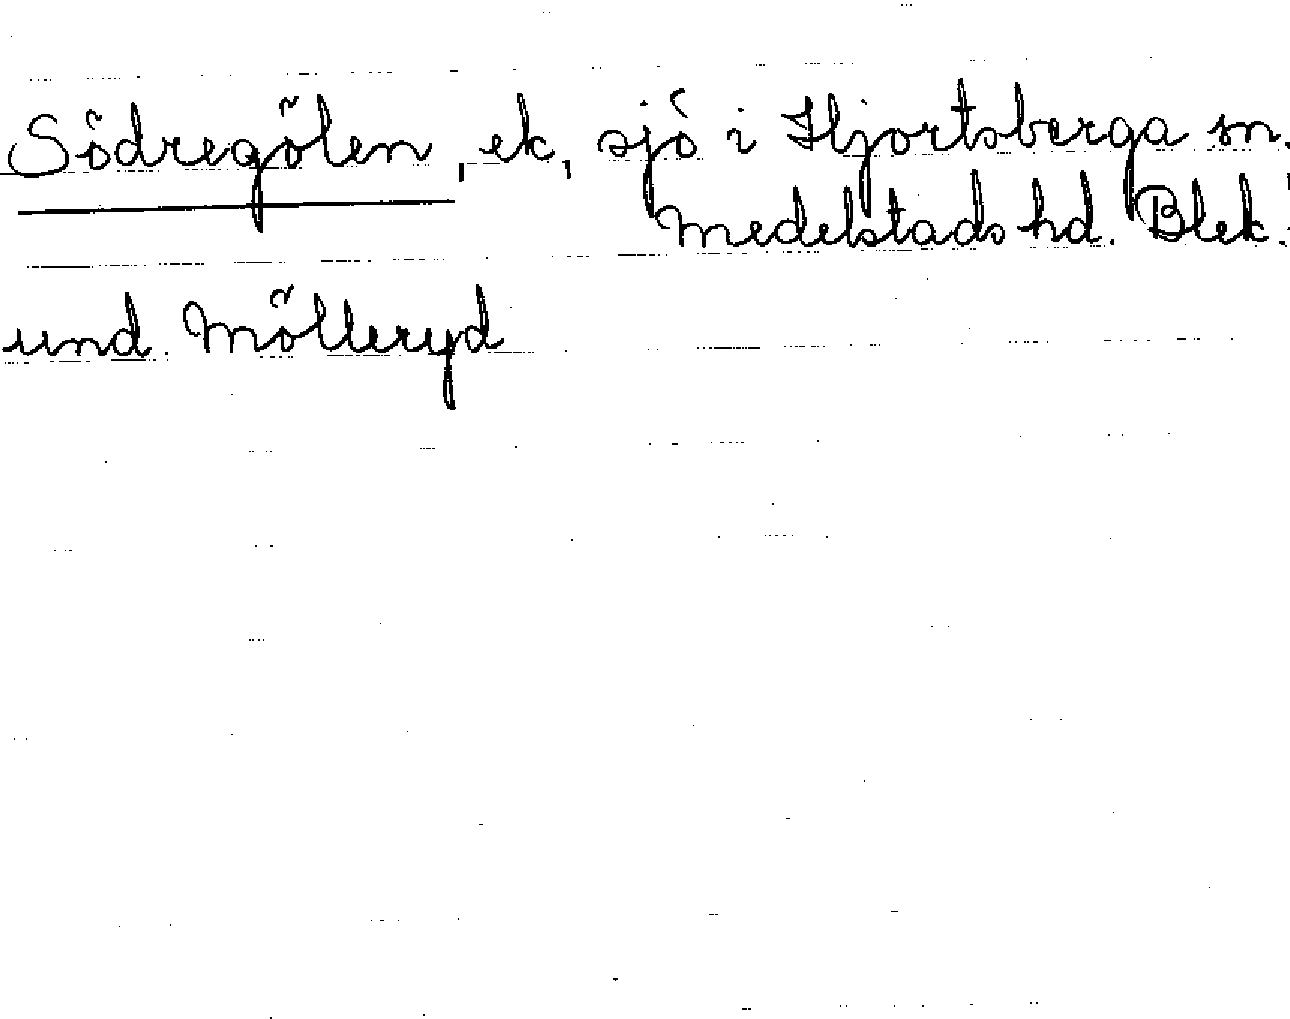 Södregölen, ek, sjö i Hjortsberga sn.
Medelstads hd. Blek.
und. Mölleryd